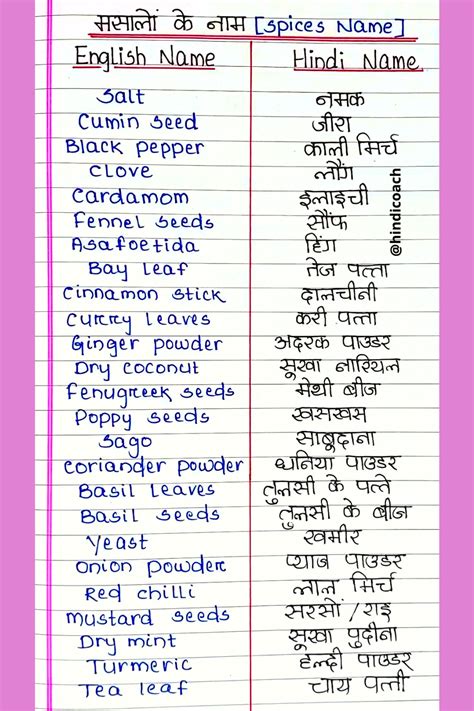 मसालों के नाम [spices Name]
English Name Hindi Name
Salt नमक
Cumin seed जीरा
Black pepper काली मिर्च
clove लौंग
Cardamom इलाइची
Fennel seeds सौंफ
Asafoetida हिंग
Bay leaf तेज पत्ता
Cinnamon stick दालचीनी
Curry leaves करी पत्ता
Ginger powder अदरक पाउडर
Dry coconut सूखा नारियल
Fenugreek seeds मेथी बीज
Poppy seeds खसखस
Sago साबुदाना
Coriander powder धनिया पाउडर
Basil leaves तुलसी के पत्ते
Basil seeds तुलसी के बीज
Yeast खमीर
Onion powder प्याज पाउडर
Red chilli लाल मिर्च
mustard seeds सरसों / राइ
Dry mint सूखा पुदीना
Turmeric हल्दी पाउडर
Tea leaf चाय पत्ती
@hindicoach